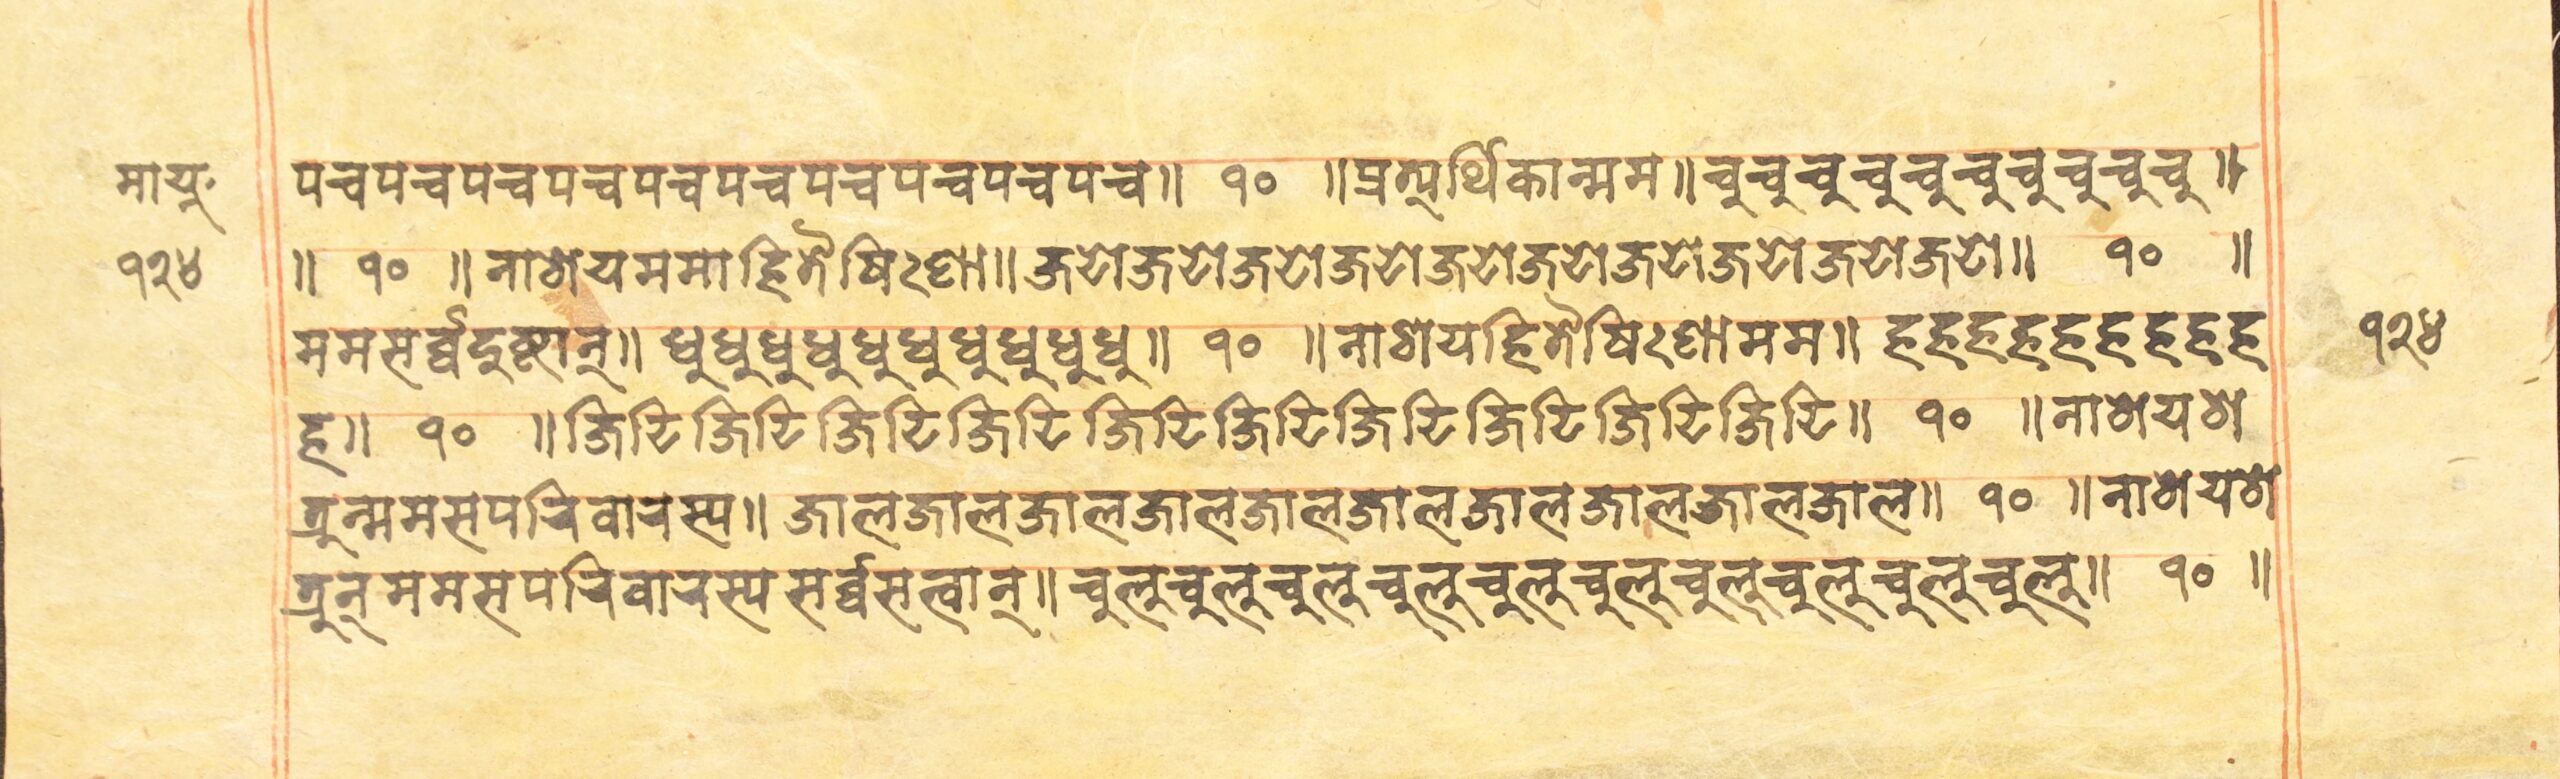 मायु पचपचपचपचपचपचपचपचपचपच॥ १० ॥प्रत्यर्थिकान्मम॥चुचुचुचुचुचुचुचुचुचु॥
१२४ ॥ १० ॥नाशयममाहितैषिःण॥जटोजटोजटोजटोजटोजटोजटोजटोजटोजटो॥ १० ॥
ममसर्व्वदुष्टान्॥धुधुधुधुधुधुधुधुधुधु॥ १० ॥नाशयहितैषिःणमम॥हहहहहहहहह १२४
ह॥ १० ॥जिटिजिटिजिटिजिटिजिटिजिटिजिटिजिटिजिटिजिटि॥ १० ॥नाशयश
त्रुन्ममसपरिवारस्य॥जालजालजालजालजालजालजालजालजालजाल॥ १० ॥नाशयश
त्रुन्ममसपरिवारस्यसर्व्वसत्वान्॥चुलुचुलुचुलुचुलुचुलुचुलुचुलुचुलुचुलुचुलु॥ १० ॥